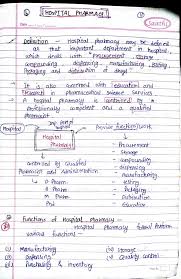 HOSPITAL PHARMACY
Definition - Hospital pharmacy may be defined
as that important department in hospital
which deals with "procurement, storage
compounding, dispensing, manufacturing, testing
Packaging and distribution of drugs".
It is also concerned with education and
Research in pharmaceutical Science Services
A hospital pharmacy is controlled by a
professionally competent and a qualified
pharmacist
Hospital
Hospital
Pharmacy
Provide function/work
- Procurement
- Storage
controlled by Qualified
- compounding
Pharmacist and Administration
- dispensing
D Pharm
- manufacturing
B Pharm
- testing
M Pharm
- Packaging
PhD
- distribution
- Education
Functions of Hospital Pharmacy -
Hospital Pharmacy perform
various functions:-
Manufacturing
Storage
Dispensing
Quality control
Purchasing & Inventory